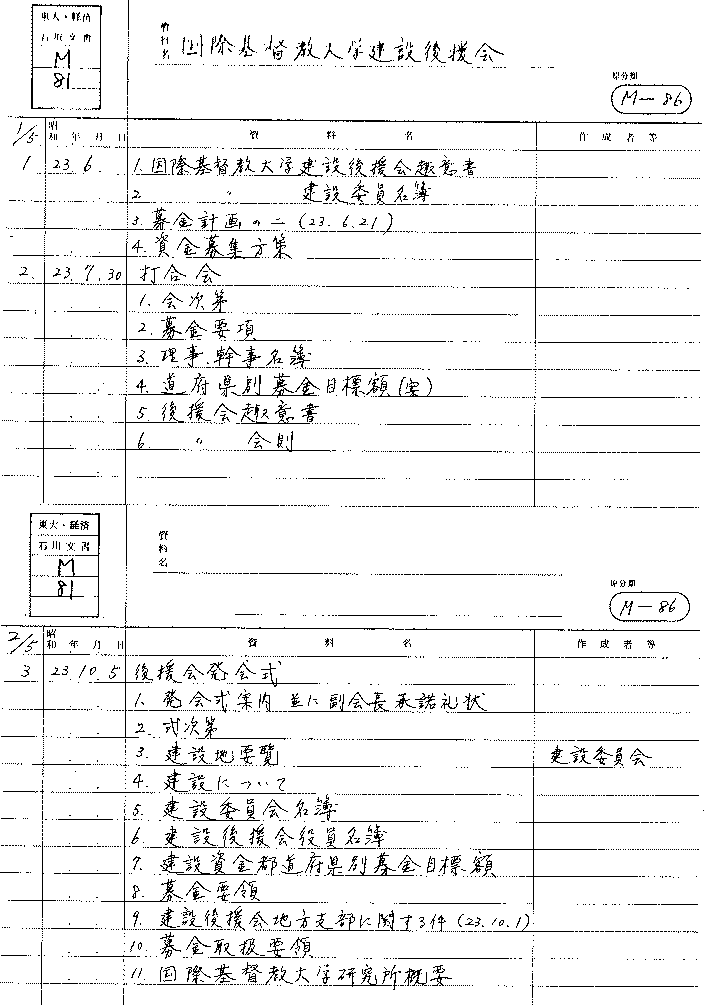 東大・経済
石川文書
M
81
資料名 国際基督教大学建設後援会
原分類
M-86
1/5 昭和 年 月 日 資料名 作成者等
1 23.6. 1. 国際基督教大学建設後援会趣意書
2. 〃 建設委員名簿
3. 募金計画の二(23.6.21)
4. 資金募集方策
2. 23.7.30 打合会
1. 会次第
2. 募金要項
3. 理事.幹事名簿
4. 道府県別募金目標額(案)
5 後援会趣意書
6. 〃 会則
東大・経済
石川文書
M
81
資料名
原分類
M-86
2/5 昭和 年 月 日 資料名 作成者等
3 23.10.5 後援会発会式
1. 発会式案内 並に副会長承諾礼状
2. 式次第
3. 建設地要覧 建設委員会
4. 建設について
5. 建設委員会名簿
6. 建設後援会役員名簿
7. 建設資金都道府県別募金目標額
8. 募金要領
9. 建設後援会地方支部に関する件(23.10.1)
10. 募金取扱要領
11. 国際基督教大学研究所概要